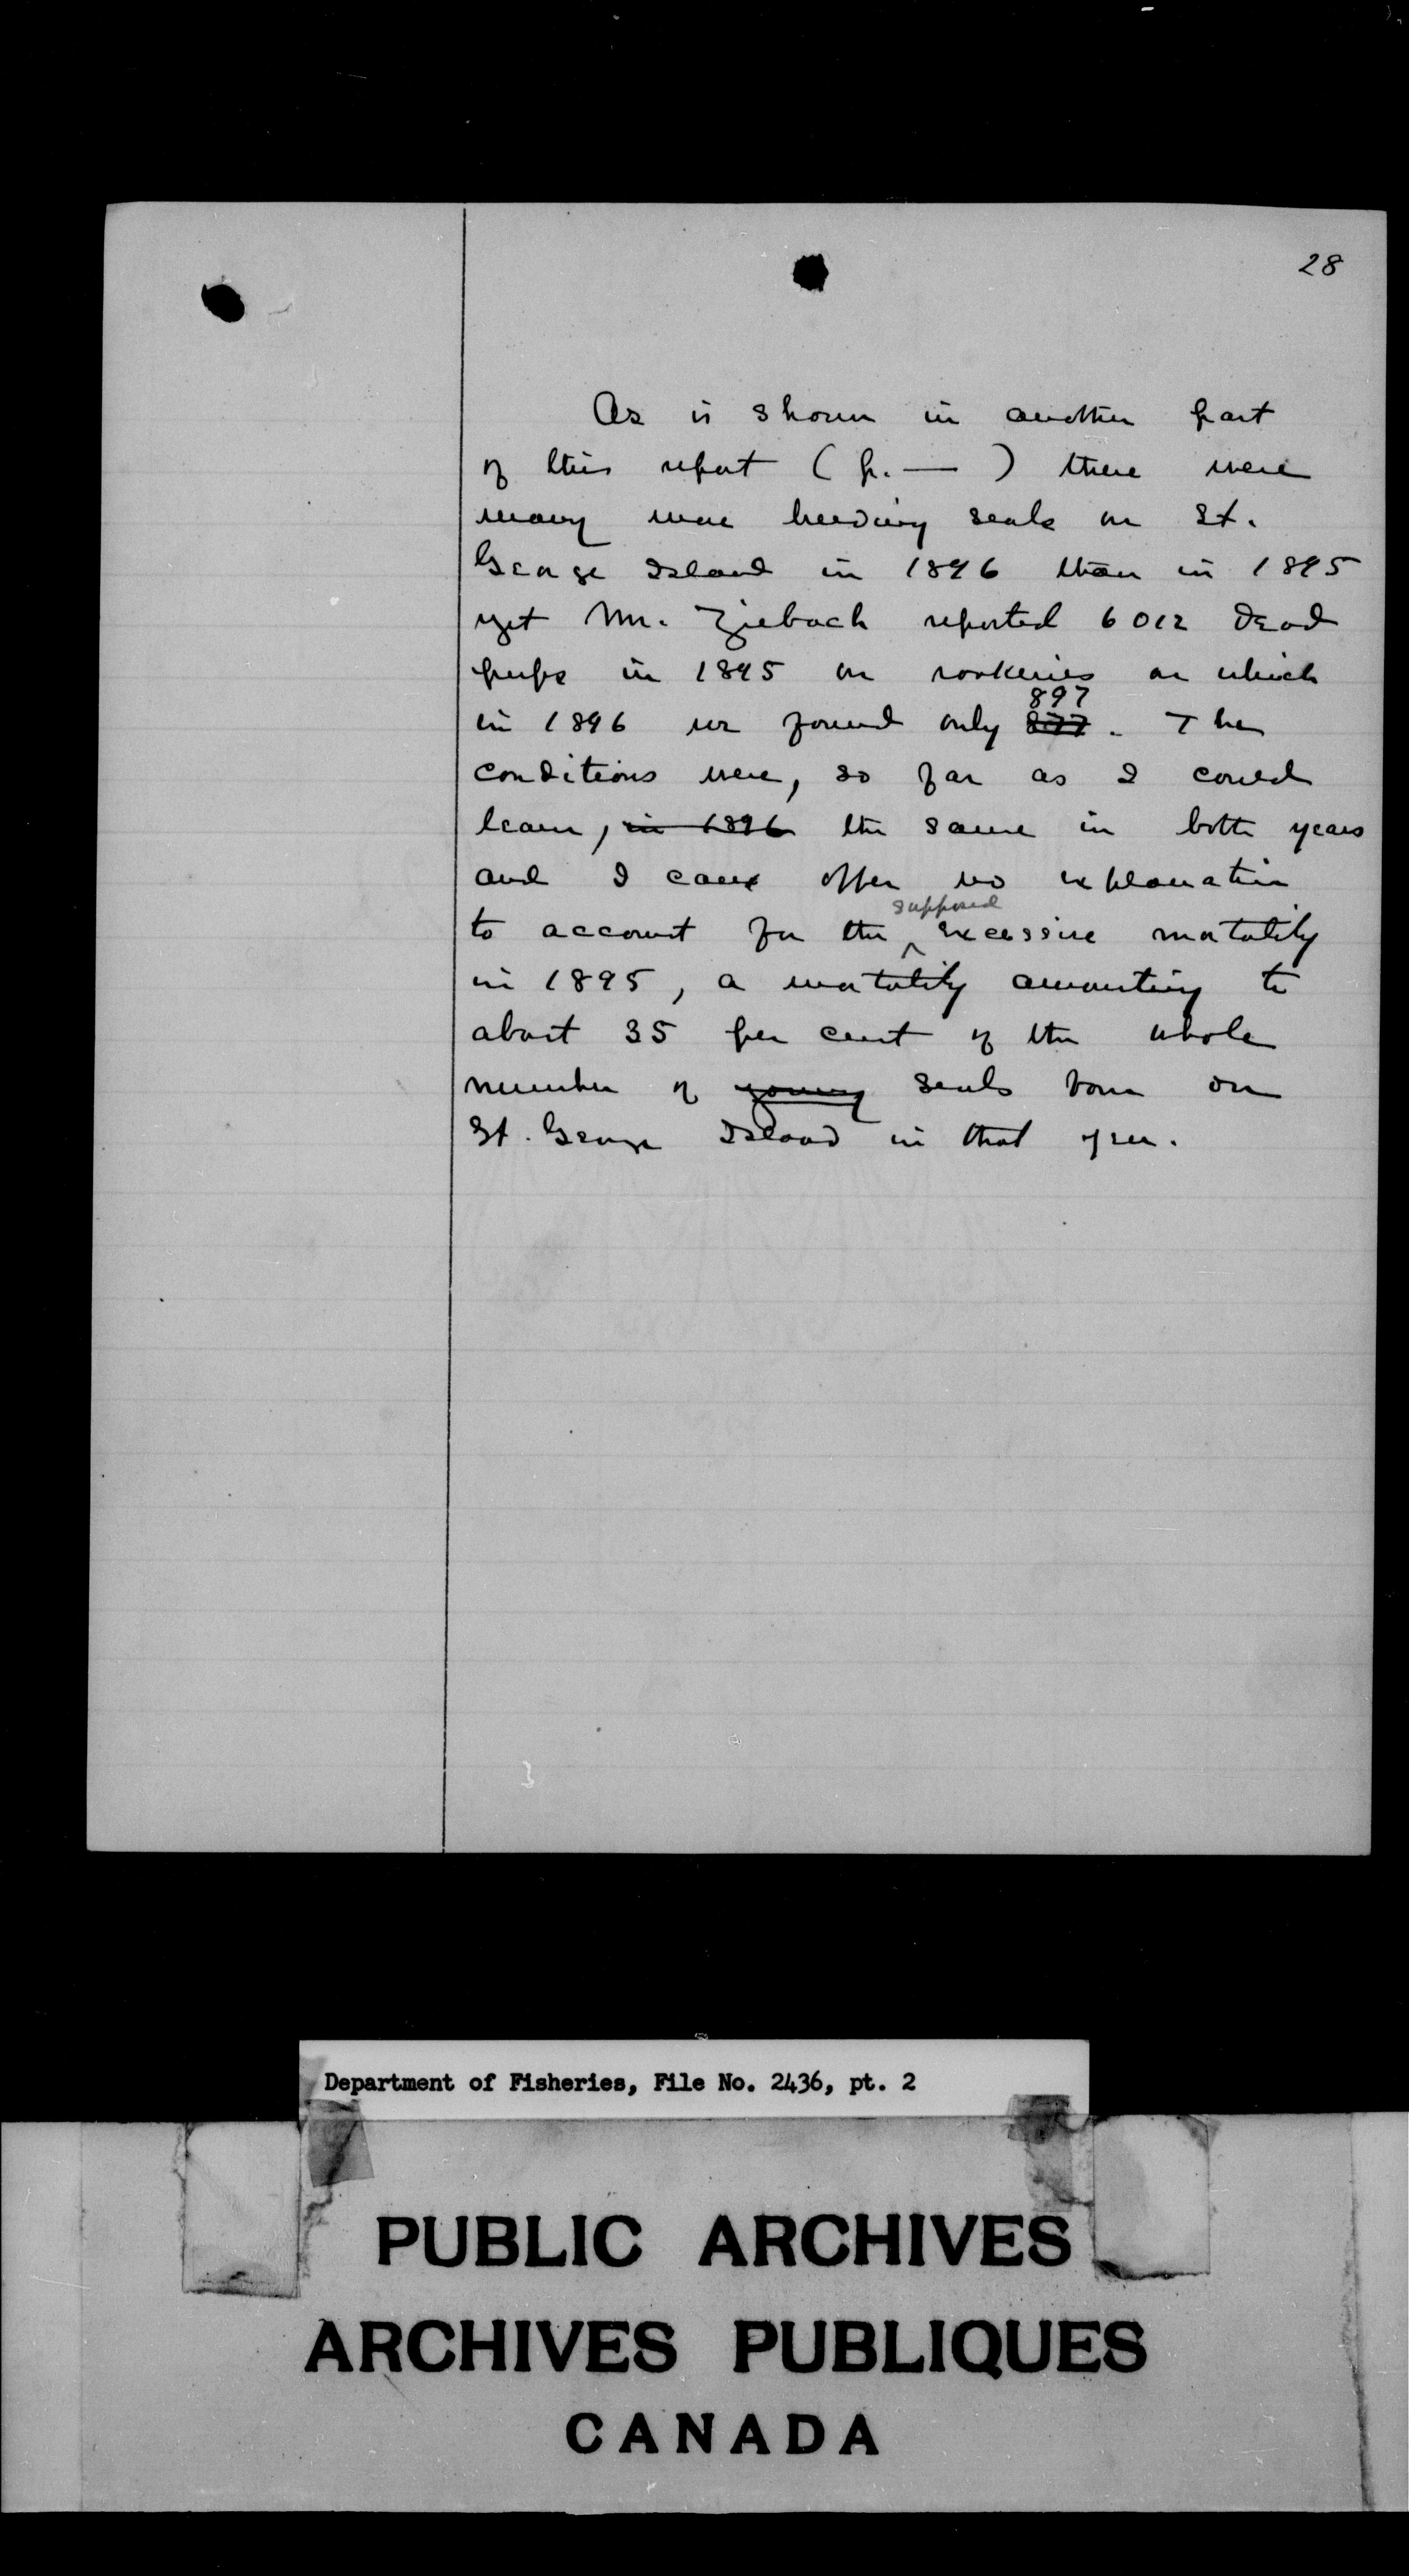 28
As is shown in another part
of this report (p. — ) there were
many more breeding seals on St.
George Island in 1896 than in 1895
yet Mr. Ziebach reported 6012 dead
pups in 1895 on rookeries on which
897
in 1896 we found only 877. The
conditions were, so far as I could
learn, in 1896 the same in both years
and I can offer no explanation
supposed
to account for the ^ excessive mortality
in 1895, a mortality amounting to
about 35 per cent of the whole
number of young seals born on
St. George Island in that year.
Department of Fisheries, File No. 2436, pt. 2
PUBLIC ARCHIVES
ARCHIVES PUBLIQUES
CANADA